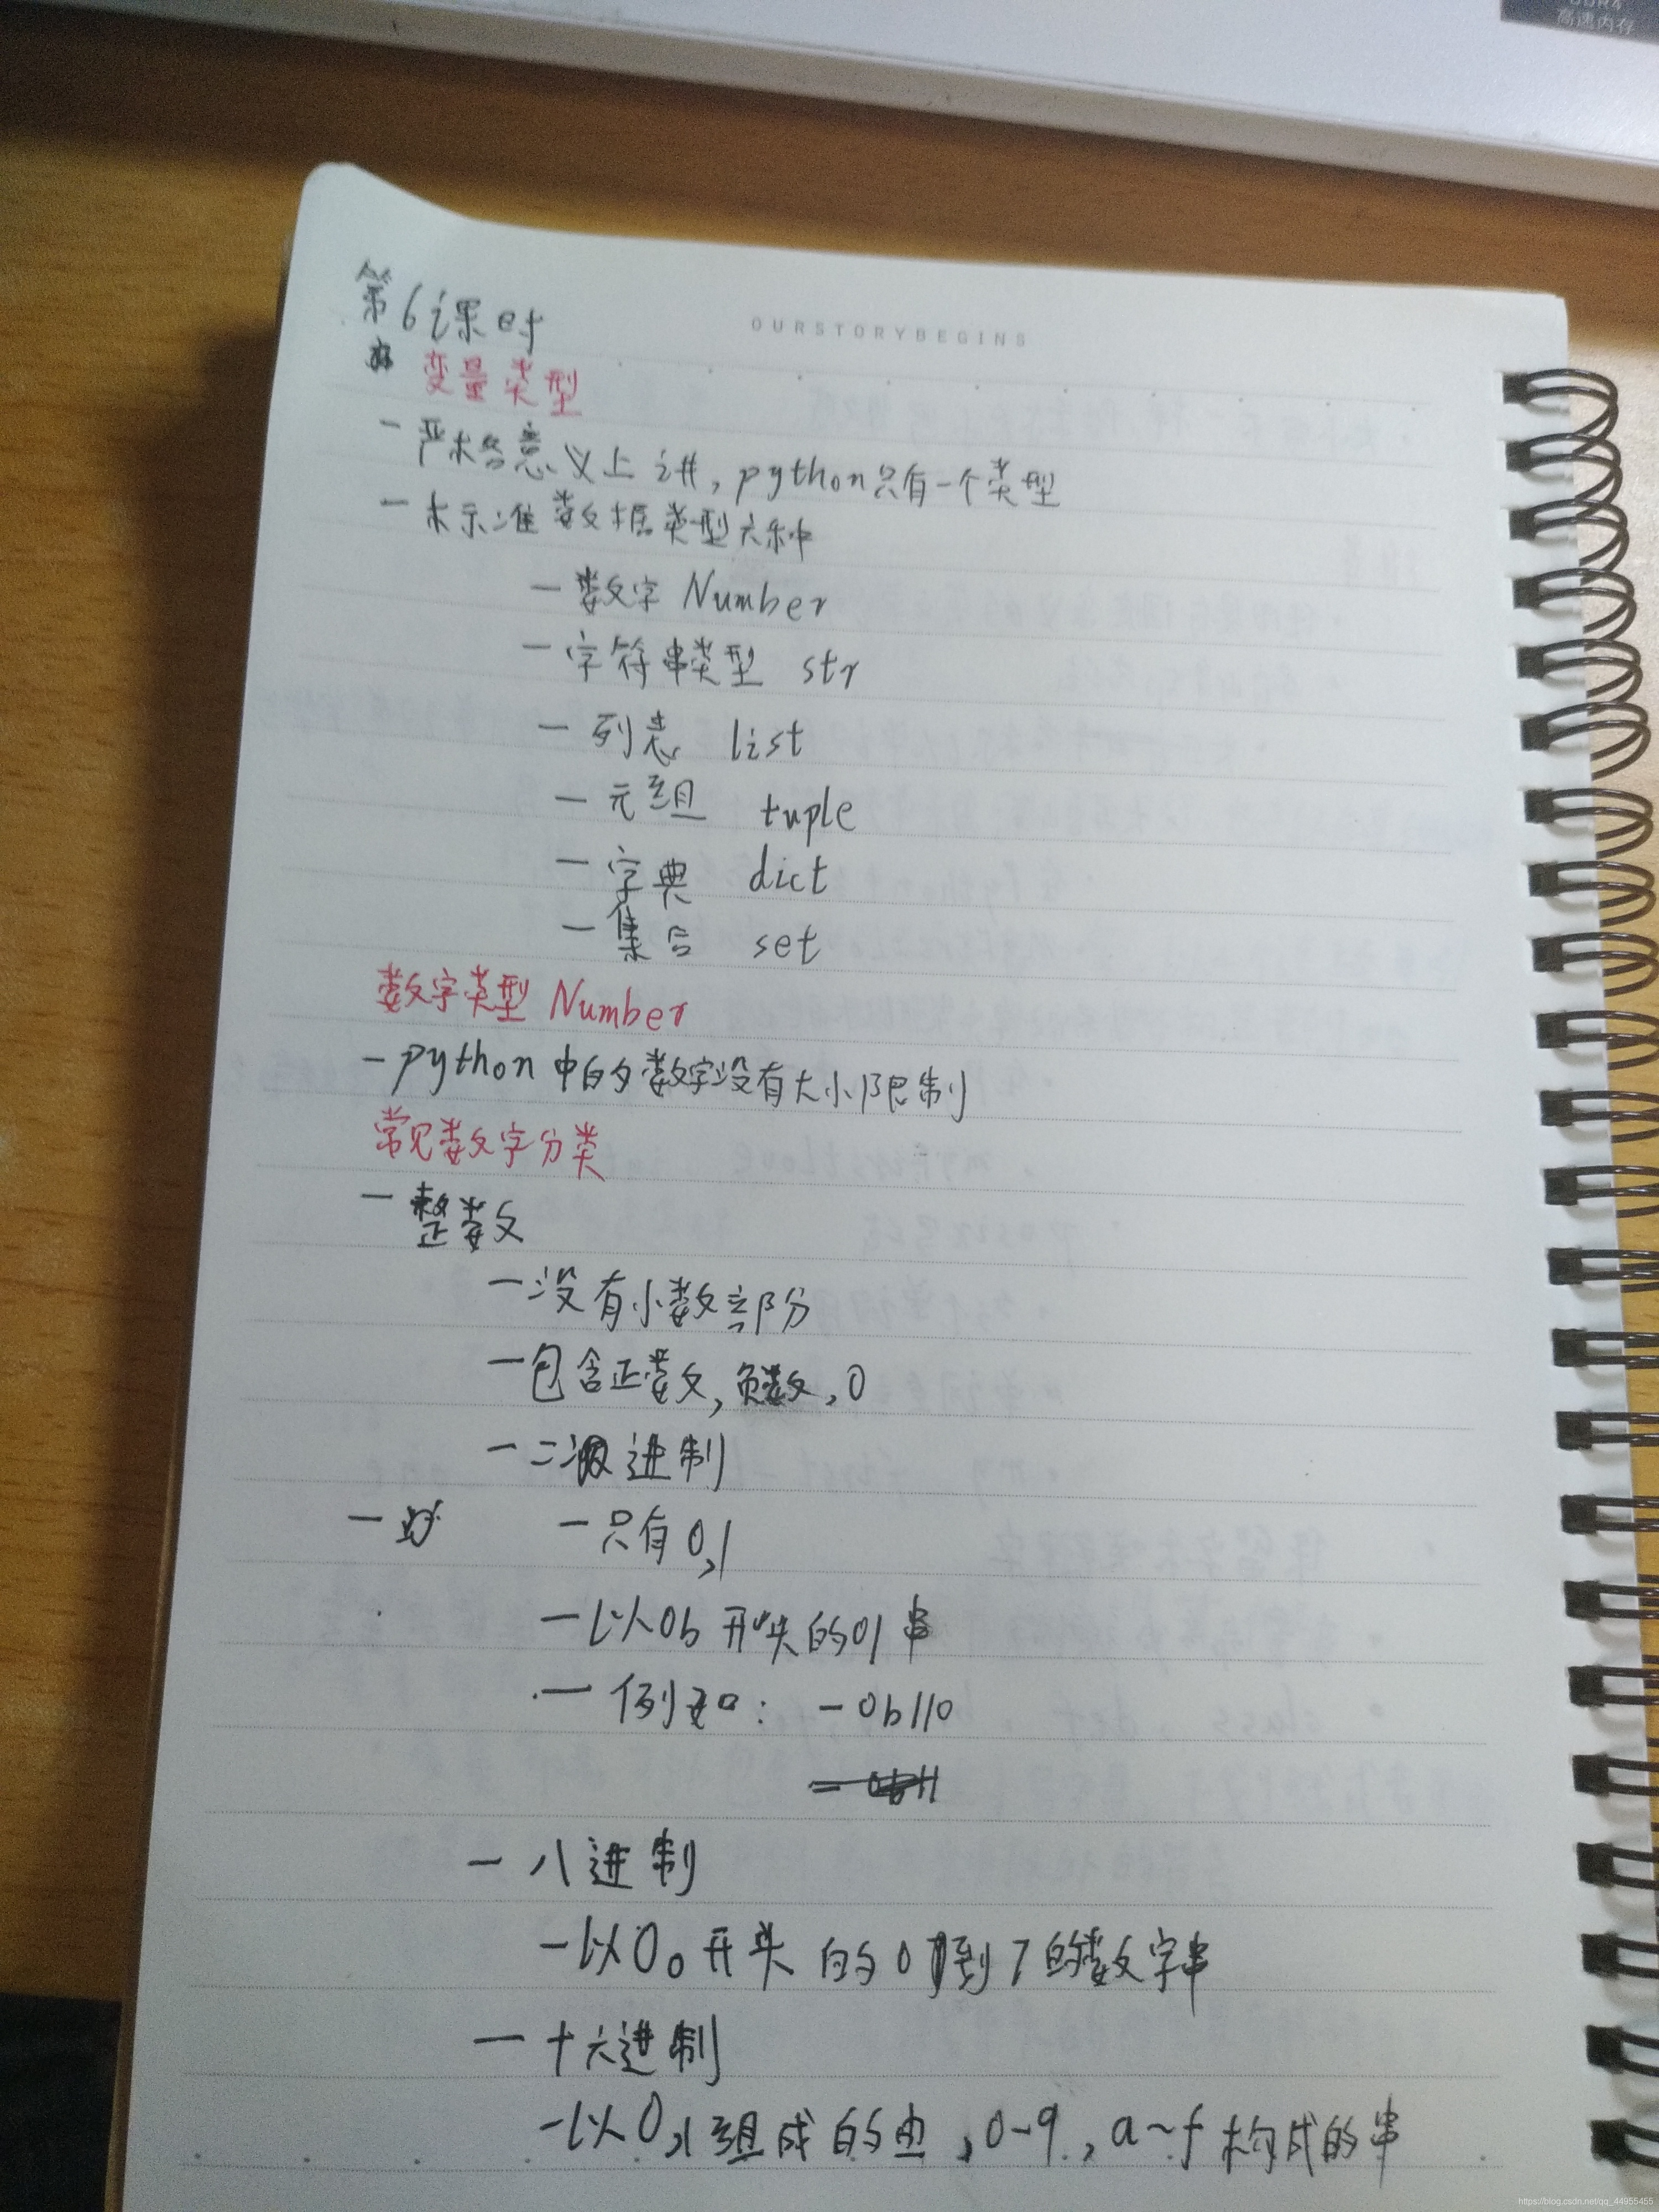 高速内存
OURSTORYBEGINS
第6课时
变量类型
- 严格意义上讲,python只有一个类型
- 标准数据类型六种
- 数字 Number
- 字符串类型 str
- 列表 list
- 元组 tuple
- 字典 dict
- 集合 set
数字类型 Number
- python 中的数字没有大小限制
常见数字分类
- 整数
- 没有小数部分
- 包含正数,负数,0
- 二进制
- 只有0,1
- 以0b开头的01串
- 例如: - 0b110
- 八进制
- 以0o开头的0到7的数字串
- 十六进制
- 以0x组成的由,0~9,a~f构成的串
https://blog.csdn.net/qq_44955455